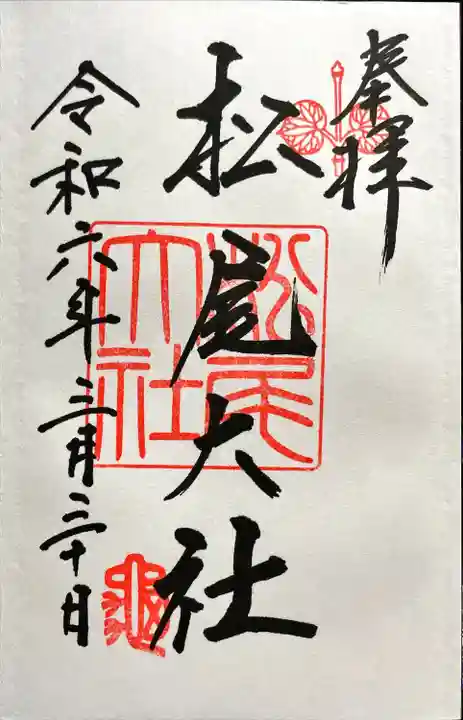 奉拝
松尾大社
令和六年三月三十日
松尾
大社